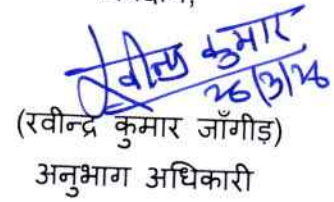 रवीन्द्र कुमार
26/3/26
(रवीन्द्र कुमार जाँगीड़)
अनुभाग अधिकारी